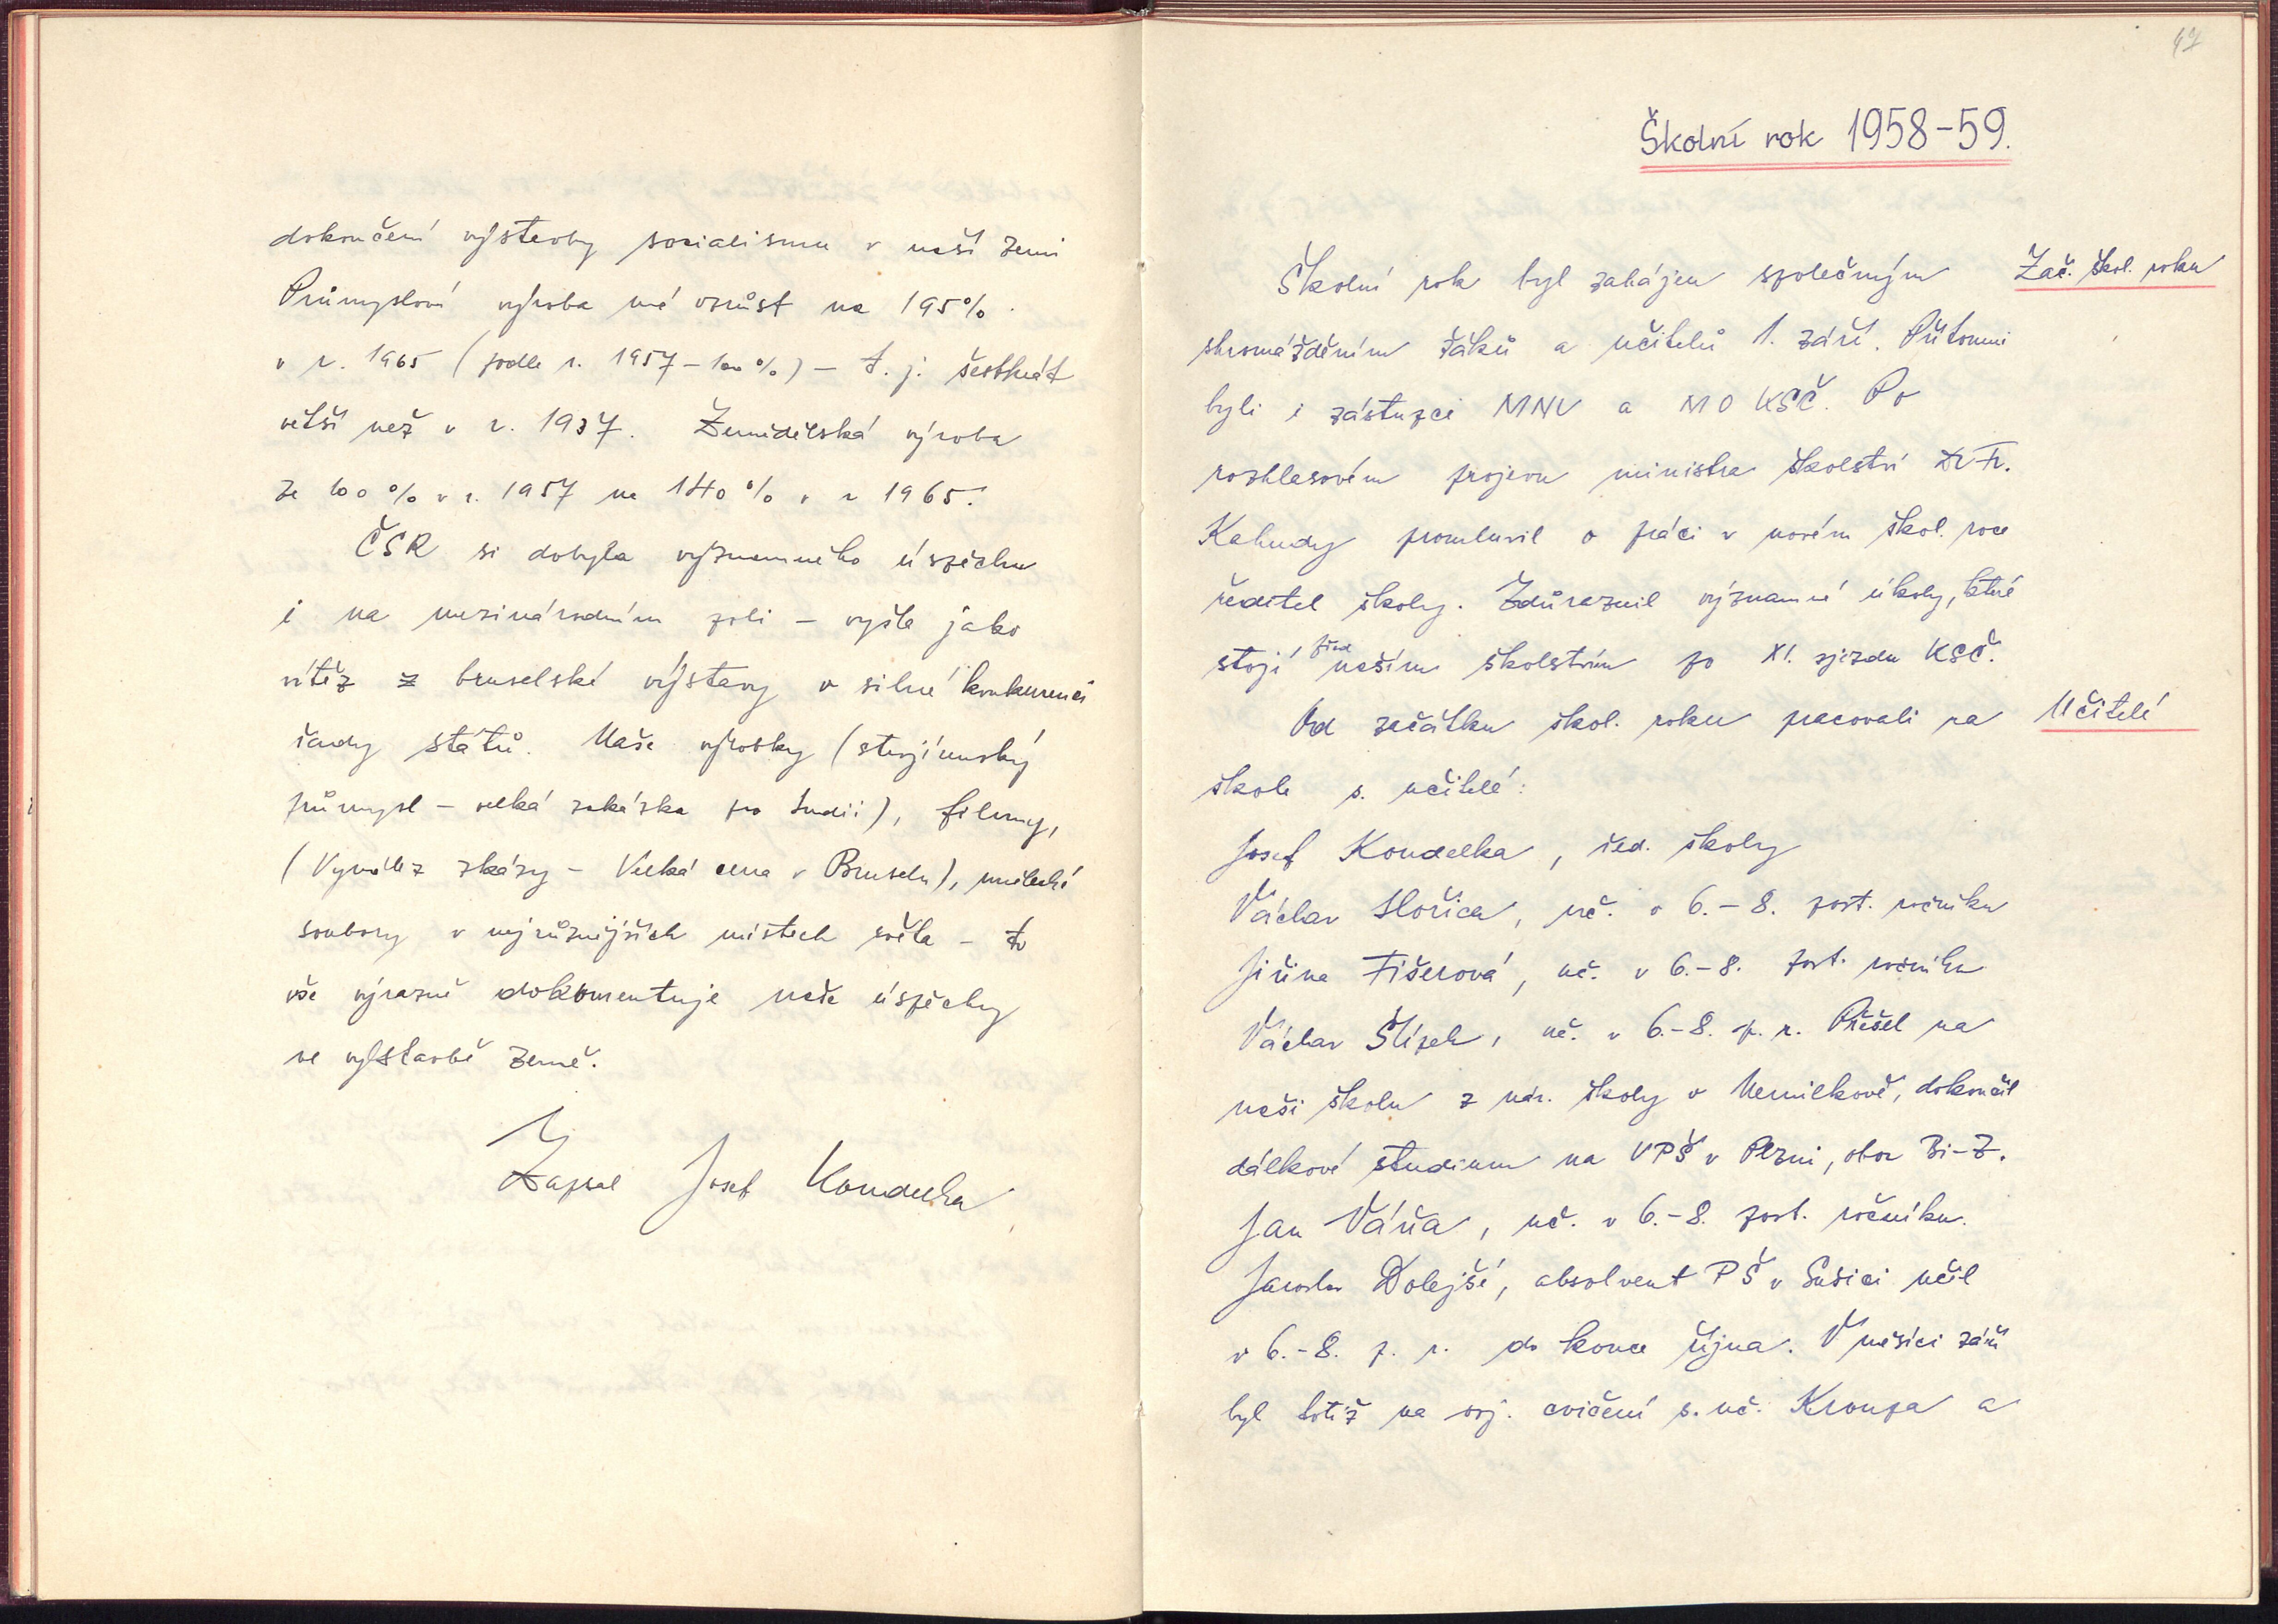 dokončení výstavby socialismu v naší zemi
Průmyslová výroba má vzrůst na 195%
v r. 1965 (podle r. 1957 – 100%) – t. j. šestkrát
větší než v r. 1937. Zemědělská výroba
ze 100% v r. 1957 na 140% v r 1965.
ČSR si dobyla významného úspěchu
i na mezinárodním poli – vyšla jako
vítěz z bruselské výstavy v silné konkurenci
řady států. Naše výrobky (strojírenský
průmysl – velká zakázka pro Indii), filmy,
(Vynález zkázy – Velká cena v Bruselu), umělecké
soubory v nejrůznějších místech světa – to
vše výrazně dokumentuje naše úspěchy
ve výstavbě země.
Zapsal Josef Koudelka
47
Školní rok 1958-59.
Školní rok byl zahájen společným
Zač. škol. roku
shromážděním žáků a učitelů 1. září. Přítomni
byli i zástupci MNV a MO KSČ. Po
rozhlasovém projevu ministra školství Dr Fr.
Kahudy promluvil o práci v novém škol. roce
ředitel školy. Zdůraznil významné úkoly, které
stojí před naším školstvím po XI. sjezdu KSČ.
Od začátku škol. roku pracovali na
Učitelé
škole s. učitelé:
Josef Koudelka, řed. školy
Václav Hořica, uč. v 6.-8. post. ročníku
Jiřina Fišerová, uč. v 6.-8. post. ročníku
Václav Šlípek, uč. v 6.-8. p. r. Přešel na
naši školu z nár. školy v Nemilkově, dokončil
dálkové studium na VPŠ v Plzni, obor Bi-Z.
Jan Váňa, uč. v 6.-8. post. ročníku.
Jaroslav Dolejší, absolvent PŠ v Sušici učil
v 6.-8. p. r. do konce října. V měsíci září
byl totiž na voj. cvičení s. uč. Kroupa a